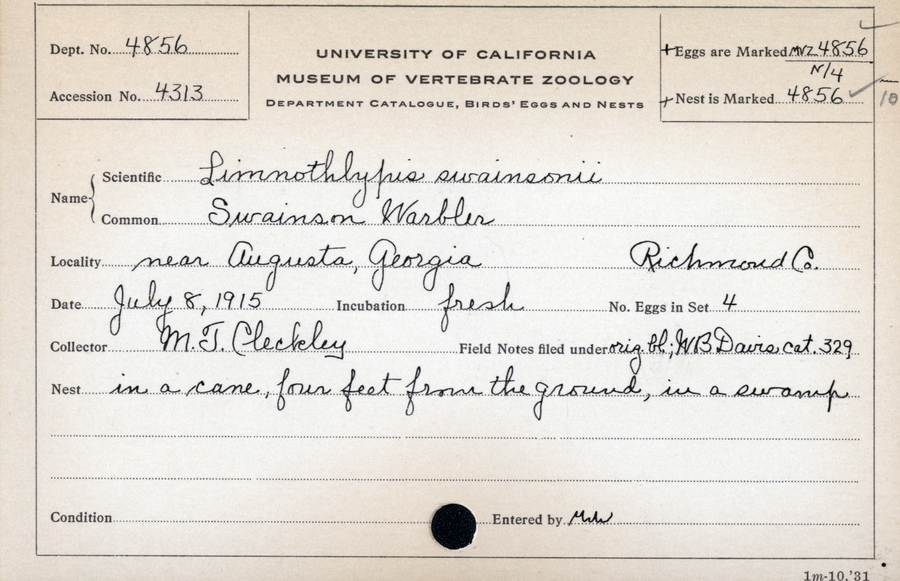 Dept. No. 4856
Accession No. 4313
UNIVERSITY OF CALIFORNIA
MUSEUM OF VERTEBRATE ZOOLOGY
DEPARTMENT CATALOGUE, BIRDS' EGGS AND NESTS
+Eggs are Marked MVZ 4856
N/4
+Nest is Marked 4856
10
Name
Scientific Limnothlypis swainsonii
Common Swainson Warbler
Locality near Augusta, Georgia Richmond Co.
Date July 8, 1915 Incubation fresh No. Eggs in Set 4
Collector M.T. Cleckley Field Notes filed under orig. bl; WB Davis cat. 329
Nest in a cane, four feet from the ground, in a swamp
Condition Entered by
1m-10,'31